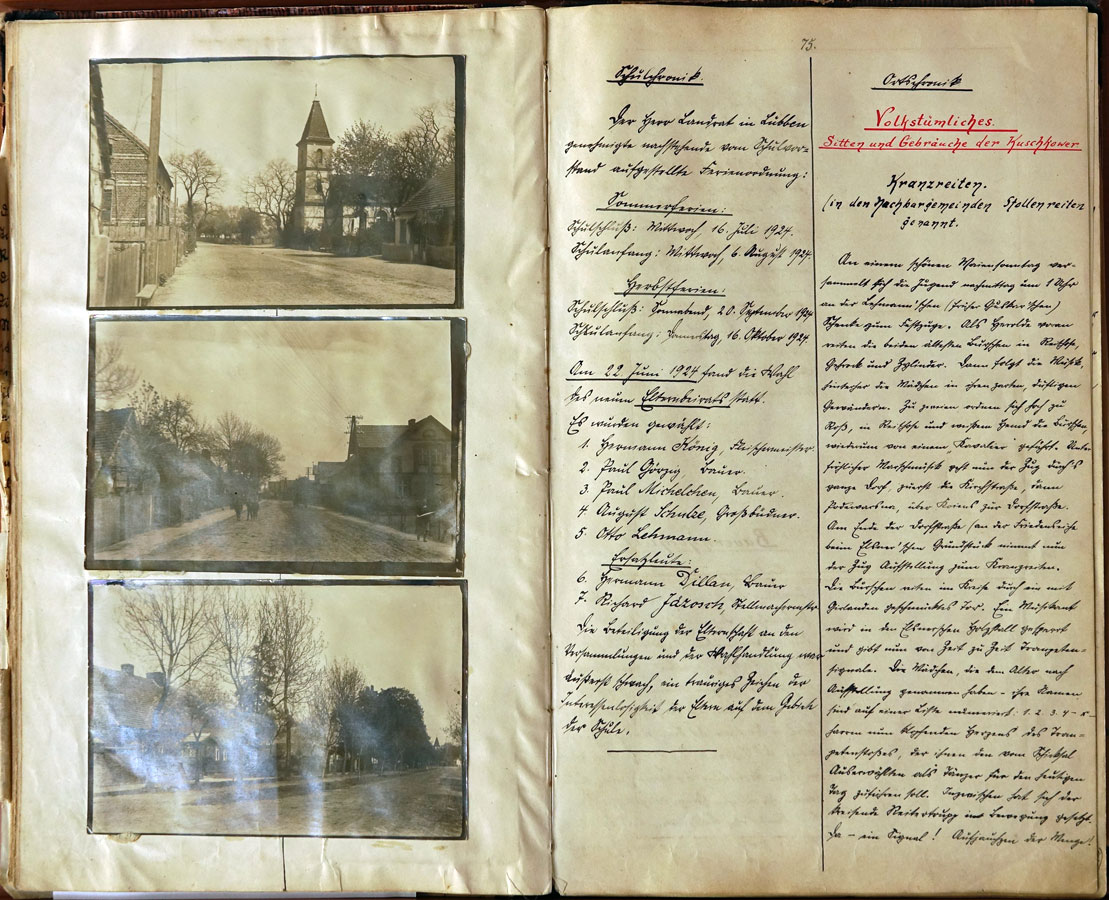 75.
Schulchronik.
Der Herr Landrat in Lübben
genehmigte nachstehende vom Schulvor-
stand aufgestellte Ferienordnung:
Sommerferien:
Schulschluß: Mittwoch 16. Juli 1924.
Schulanfang: Mittwoch, 6. August 1924.
Herbstferien:
Schulschluß: Sonnabend, 20. September 1924
Schulanfang: Donnerstag, 16. Oktober 1924.
Am 22. Juni 1924 fand die Wahl
des neuen Elternbeirats statt.
Es wurden gewählt:
1. Hermann König, Fleischermeister.
2. Paul Görzig, Bauer.
3. Paul Michelchen, Bauer.
4. August Schulze, Großbüdner.
5. Otto Lehmann
Ersatzleute:
6. Hermann Dillan, Bauer
7. Richard Jäzosch, Stellmachermstr
Die Beteiligung der Elternschaft an den
Versammlungen und der Wahlhandlung war
äußerst schwach, ein trauriges Zeichen der
Interessenlosigkeit der Eltern auf dem Gebiete
der Schule.
Ortschronik
Volkstümliches.
Sitten und Gebräuche der Kuschkower
Kranzreiten.
(in den Nachbargemeinden Stollenreiten
genannt.
An einem schönen Maiensonntag ver-
sammelt sich die Jugend nachmittag um 1 Uhr
an der Lehmann'schen (früher Gubker'schen)
Schenke zum Festzuge. Als Herolde voran
reiten die beiden ältesten Burschen in Reithose,
Gehrock und Zylinder. Dann folgt die Musik,
hinterher die Mädchen in ihren zarten, duftigen
Gewändern. Zu zweien ordnen sich hoch zu
Roß, in Reithose und weißem Hemd die Burschen,
wiederum von einem „Kavalier“ geführt. Unter
fröhlicher Marschmusik geht nun der Zug durch's
ganze Dorf, zuerst die Kirchstraße, dann
über zur Dorfstraße.
Am Ende der Dorfstraße (an der Friedenseiche
beim Elsner'schen Grundstück nimmt nun
der Zug Aufstellung zum Kranzreiten.
Die Burschen reiten im Kreise durch ein mit
Girlanden geschmücktes Tor. Ein Musikant
wird in den Elsnerschen Holzstall gesperrt
und gibt nun von Zeit zu Zeit Trompeten-
signale. Die Mädchen, die dem Alter nach
Aufstellung genommen haben – ihre Namen
sind auf einer Liste numeriert 1. 2. 3. 4 – x –
harren nun klopfenden Herzens des Trom-
petenstoßes, der ihnen den vom Schicksal
Auserwählten als Tänzer für den heutigen
Tag zuführen soll. Inzwischen hat sich der
kreisende Reitertrupp in Bewegung gesetzt.
Da – ein Signal! Aufjauchzen der Menge!